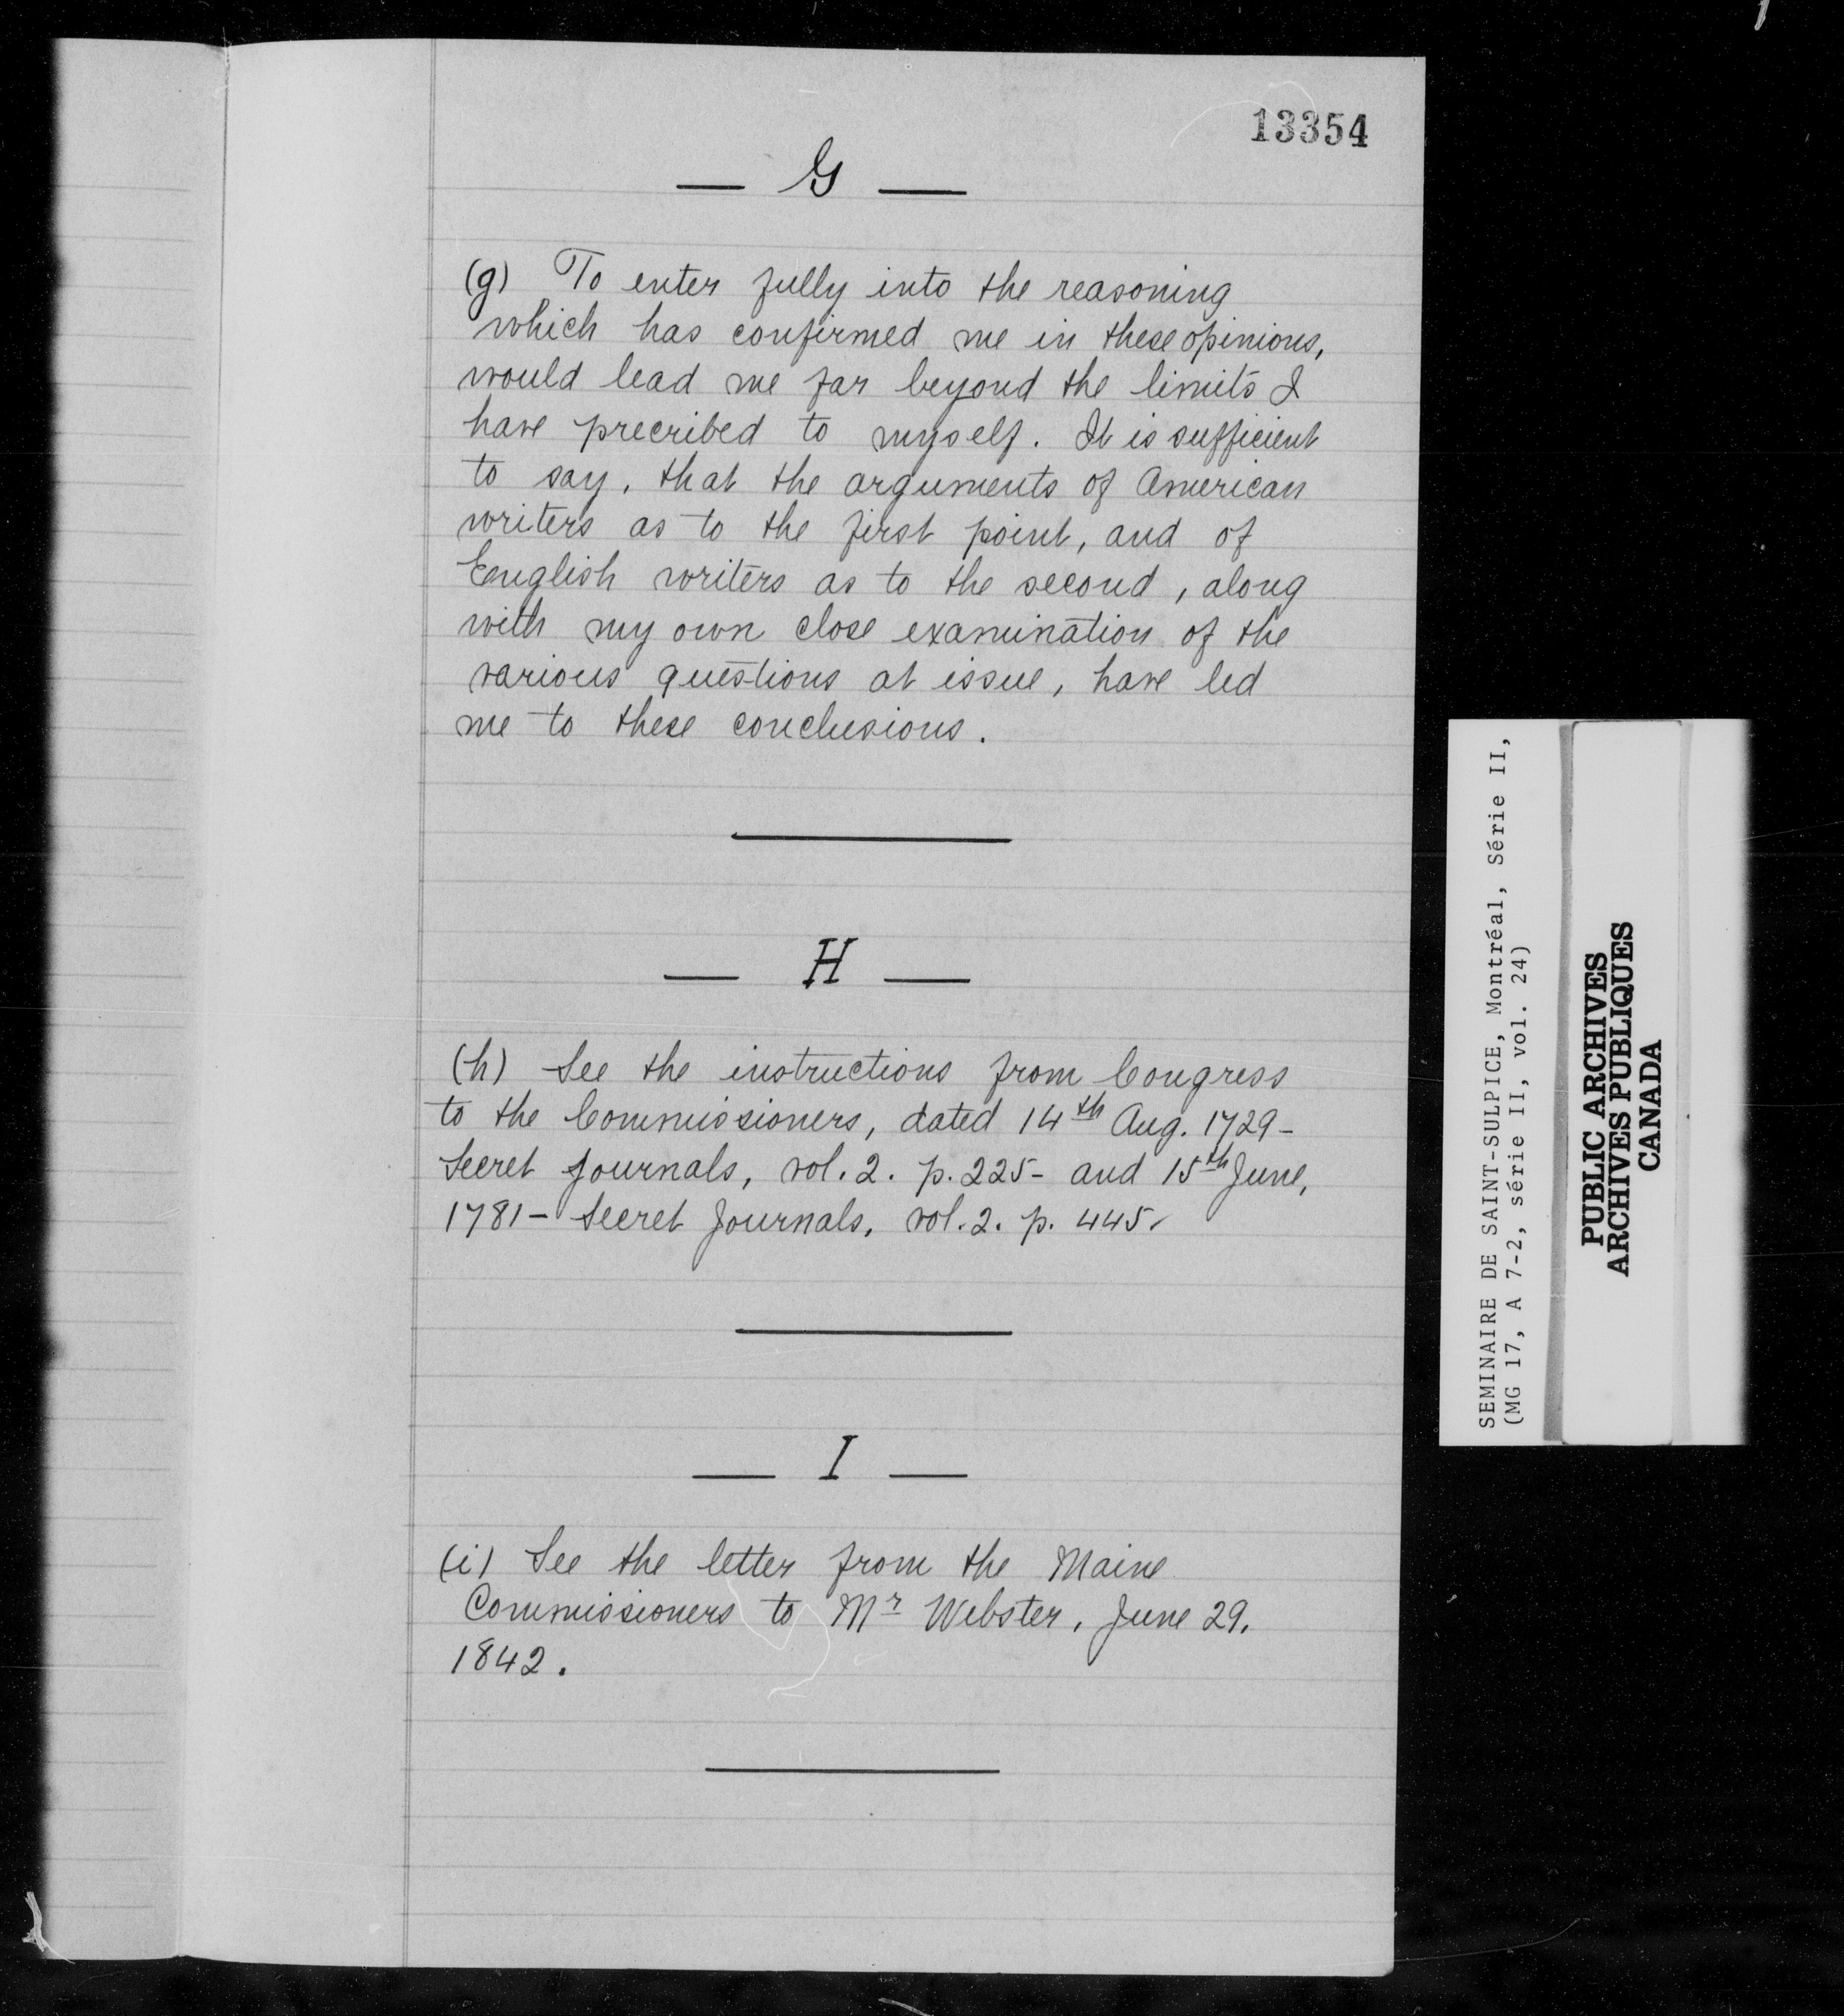 13354
— G —
(g) To enter fully into the reasoning
which has confirmed me in these opinions,
would lead me far beyond the limits I
have precribed to myself. It is sufficient
to say, that the arguments of American
writers as to the first point, and of
English writers as to the second, along
with my own close examination of the
various questions at issue, have led
me to these conclusions.
— H —
(h) See the instructions from Congress
to the Commissioners, dated 14th Aug. 1729-
Secret Journals, vol. 2. p. 225- and 15th June,
1781- Secret Journals, vol. 2. p. 445.
— I —
(i) See the letter from the Maine
Commissioners to Mr Webster, June 29,
1842.
SEMINAIRE DE SAINT-SULPICE, Montréal, Série II,
(MG 17, A 7-2, série II, vol. 24)
PUBLIC ARCHIVES
ARCHIVES PUBLIQUES
CANADA